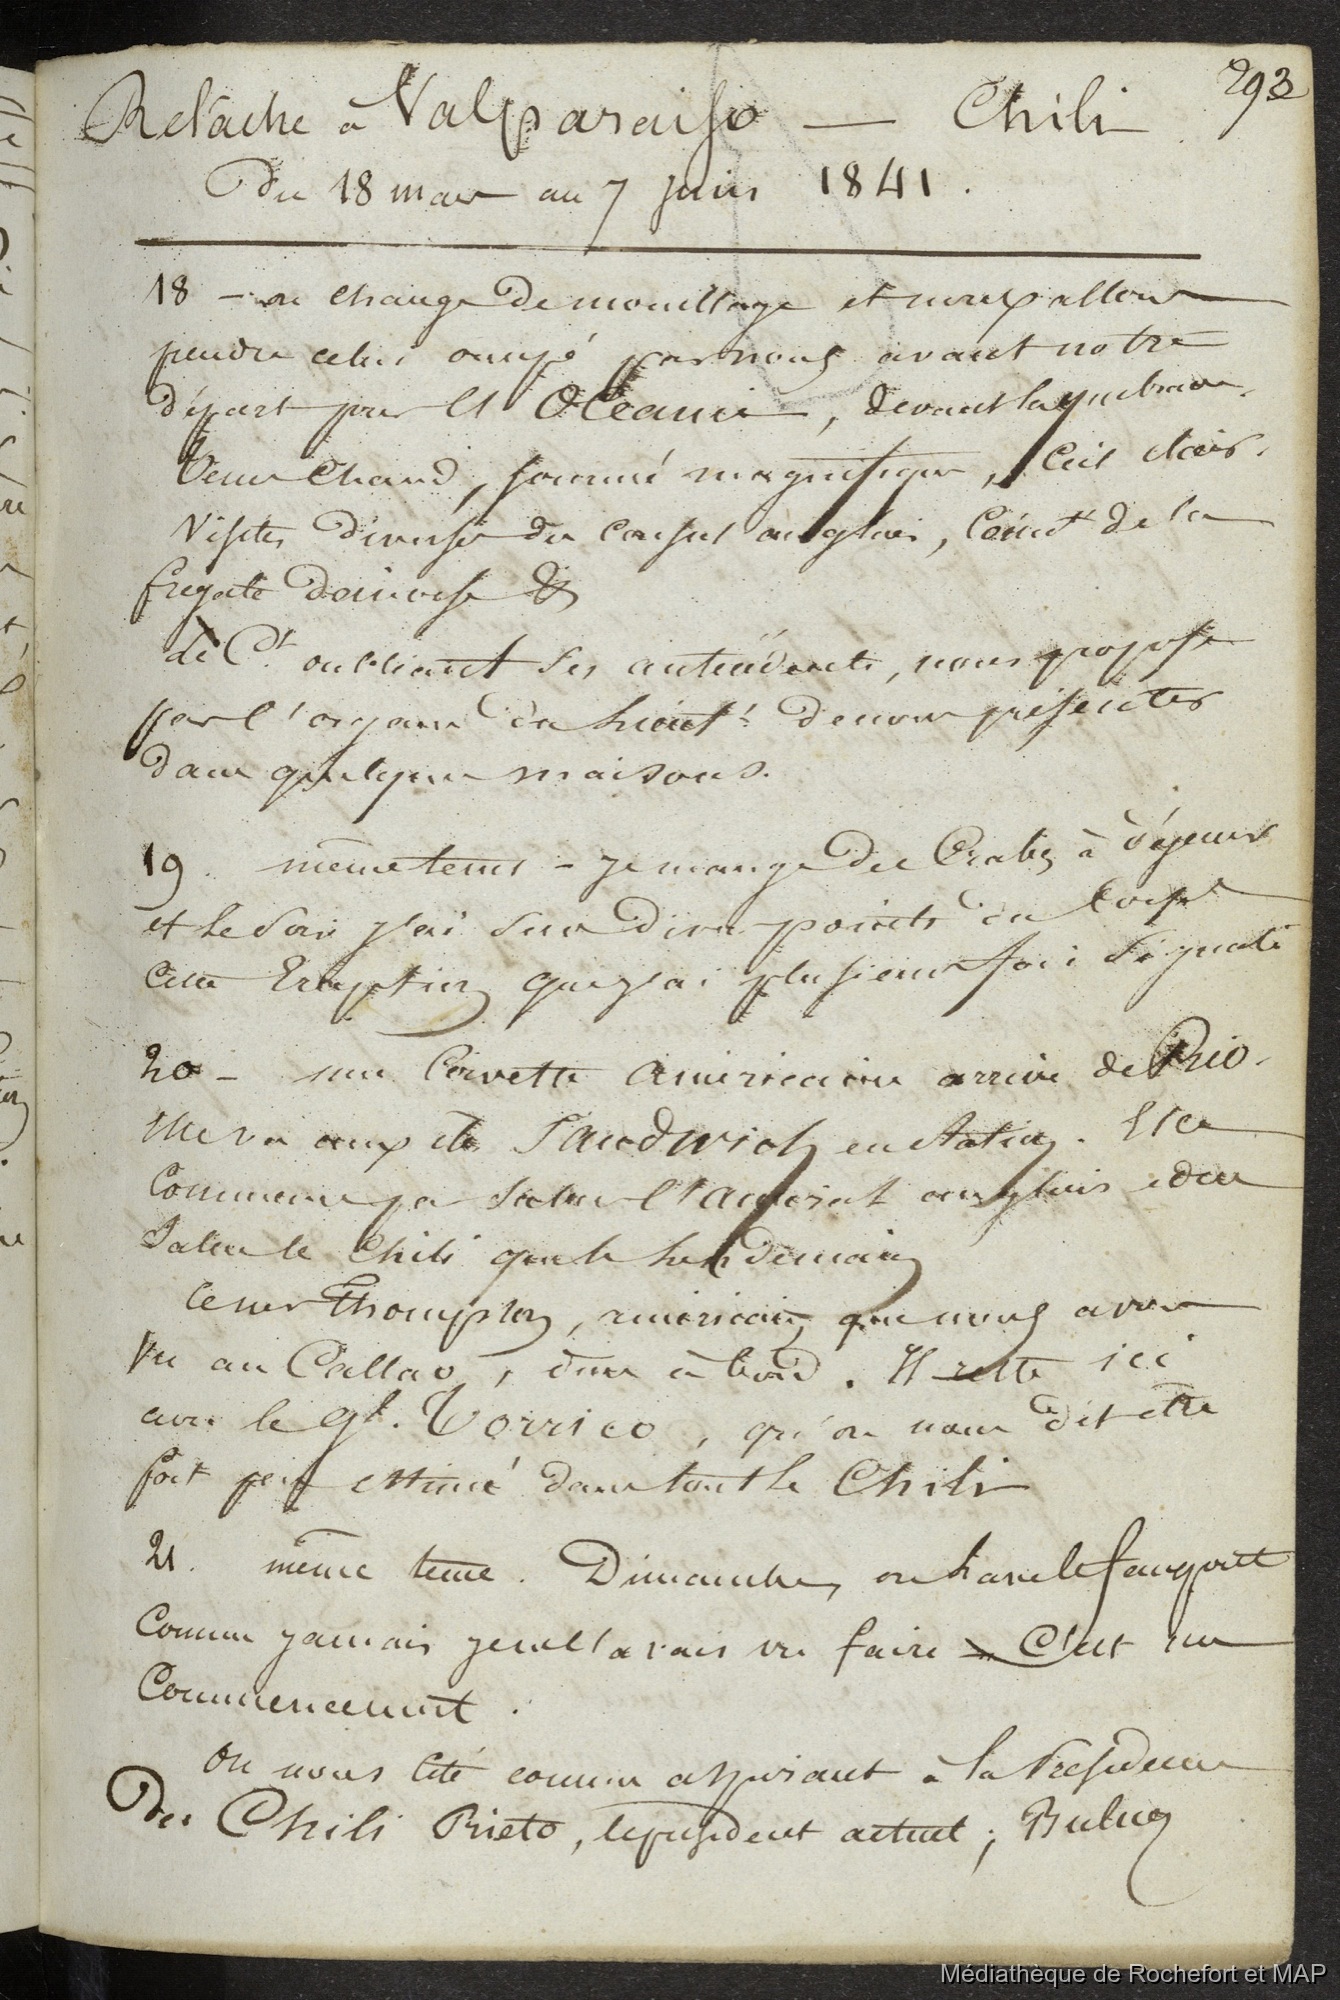 293
Relâche à Valparaiso — Chili
Du 18 mars au 7 juin 1841.
18 – on change de mouillage et nous allons
prendre celui occupé par nous avant notre
départ pour l'Océanie, devant la quebrada.
Tems chaud, sommé magnifique, Ciel clair.
Visites diverses du Consul anglais, Comt de la
fregate Danoise &
le Ct. oubliant ses antécédents, nous propose
par l'organe du lieutt. de nous présenter
dans quelques maisons.
19. même tems – je mange des Crabes à déjeuner
et le soir j'ai sur divers points du Corps
cette Eruption que j'ai plusieurs fois signalé
20 – une Corvette américaine arrive de Rio.
Elle va aux iles Sandwich en station. Elle
commence par saluer l'amiral anglais et ne
salue le Chili que le lendemain
Thompson, américain, que nous avons
vu au Callao, dine à bord. Il reste ici
avec le gl. Torrico, qu'on nous dit être
fort peu estimé dans tout le Chili
21. même tems. Dimanche, on lave le faux pont
comme jamais je ne l'avais vu faire – C'est un
Commencement.
On nous cite comme aspirant à la Présidence
du Chili Prieto, le président actuel; Bulnes
Médiathèque de Rochefort et MAP